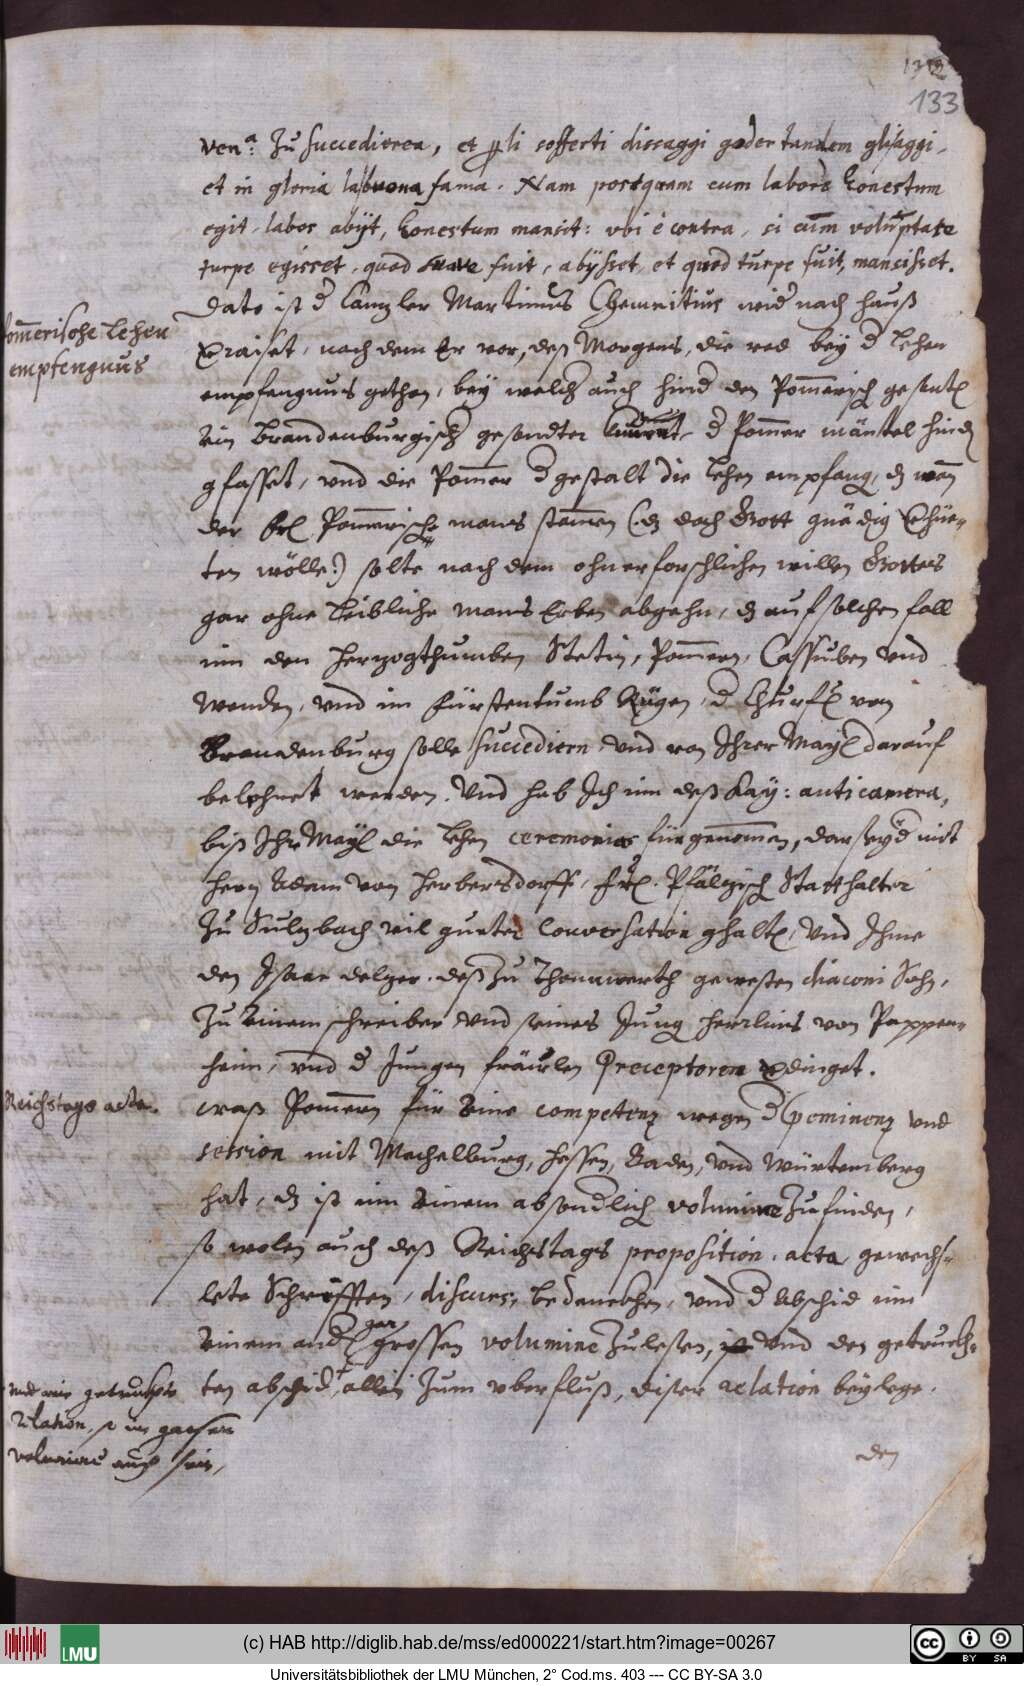 133
ven.a: Zu succedieren, et p(er) li sofferti dissaggi goder tandem gli aggi,
et in gloria la buona fama. Nam postquam cum labore honestum
egit, labor abijt, honestum mansit: vbi è contra, si cum voluptate
turpe egisset, quod suave fuit, abijsset, et quod turpe fuit, mansisset.
Dato ist d Cantzler Martinus Chemnitius wid nach hauß
verraiset, nach dem Er vor, deß Morgens, die red bey d Lehen
Pommerische Lehen
empfengnus
empfengnus gethon, bey welcher auch hind den Pommerisch gesant
ein Brandenburgisch gesandter d Pommer mäntel hind
gfasset, vnd die Pommer dgestalt die Lehen empfang, dz wan
der Pommerische mans stammen (dz doch Gott gnädig verhüe-
ten wölle) solte nach dem ohnerforschlichen willen Gottes
gar ohne Leibliche Mans Erben abgehn, dz auf solchen fall
inn den Herzogthumben Stetin, Pommern, Cassuben vnd
Wenden, vnd im Fürstentumb Rügen, d Churf. von
Brandenburg solle succediern vnd von Ihrer May. darauf
belehnet werden. Vnd hab Ich inn deß Kay: anticamera,
biß Ihr May. die Lehen ceremonias fürgenommen, mit
Hern Adam von Herbersdorff, Frl. Pfältzisch Statthalter
Zu Sultzbach vil gueter conversation ghalten, vnd Ihme
den Isaac deß Zu Thonawerth gewesten diaconi Sohn,
Zu einem schreiber vnd seines Jung herrlins von Pappen-
heim, vnd d Jungen fräwlen Præceptoren verdinget.
Reichstags acta.
Waß Pommern für eine competentz wegen d præeminentz vnd
session mit Mechelburg, Hessen, Baden, vnd Würtemberg
hat, dz ist inn einem absondlich volumine Zu finden,
so wolen auch deß Reichstags proposition, acta gewechs-
lete Schrifften, discurs, bedencken, vnd d Abschid inn
einem and gar grossen volumine Zu lesen, vnd den getruckh-
ten abschid, allein Zum vberfluß, diser relation beylege.
vnd wie getruckhte
relation, so in grossen
volumine auch sein,
den
(c) HAB http://diglib.hab.de/mss/ed000221/start.htm?image=00267
LMU
cc BY SA
Universitätsbibliothek der LMU München, 2° Cod.ms. 403 --- CC BY-SA 3.0